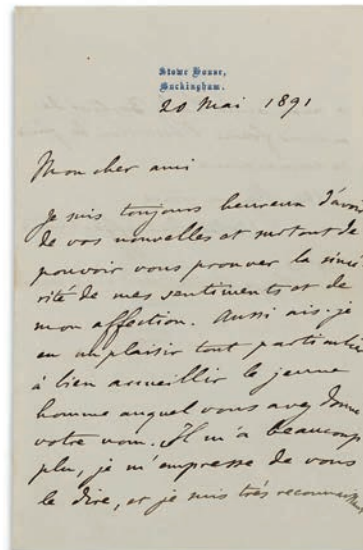 Stowe House,
Buckingham.
20 Mai 1891
Mon cher ami
Je suis toujours heureux d'avoir
de vos nouvelles et surtout de
pouvoir vous prouver la sincé
rité de mes sentiments et de
mon affection. Aussi ais-je
eu un plaisir tout particulier
à bien accueillir le jeune
homme auquel vous avez donné
votre nom. Il m'a beaucoup
plu, je m'empresse de vous
le dire, et je suis très reconnaissant